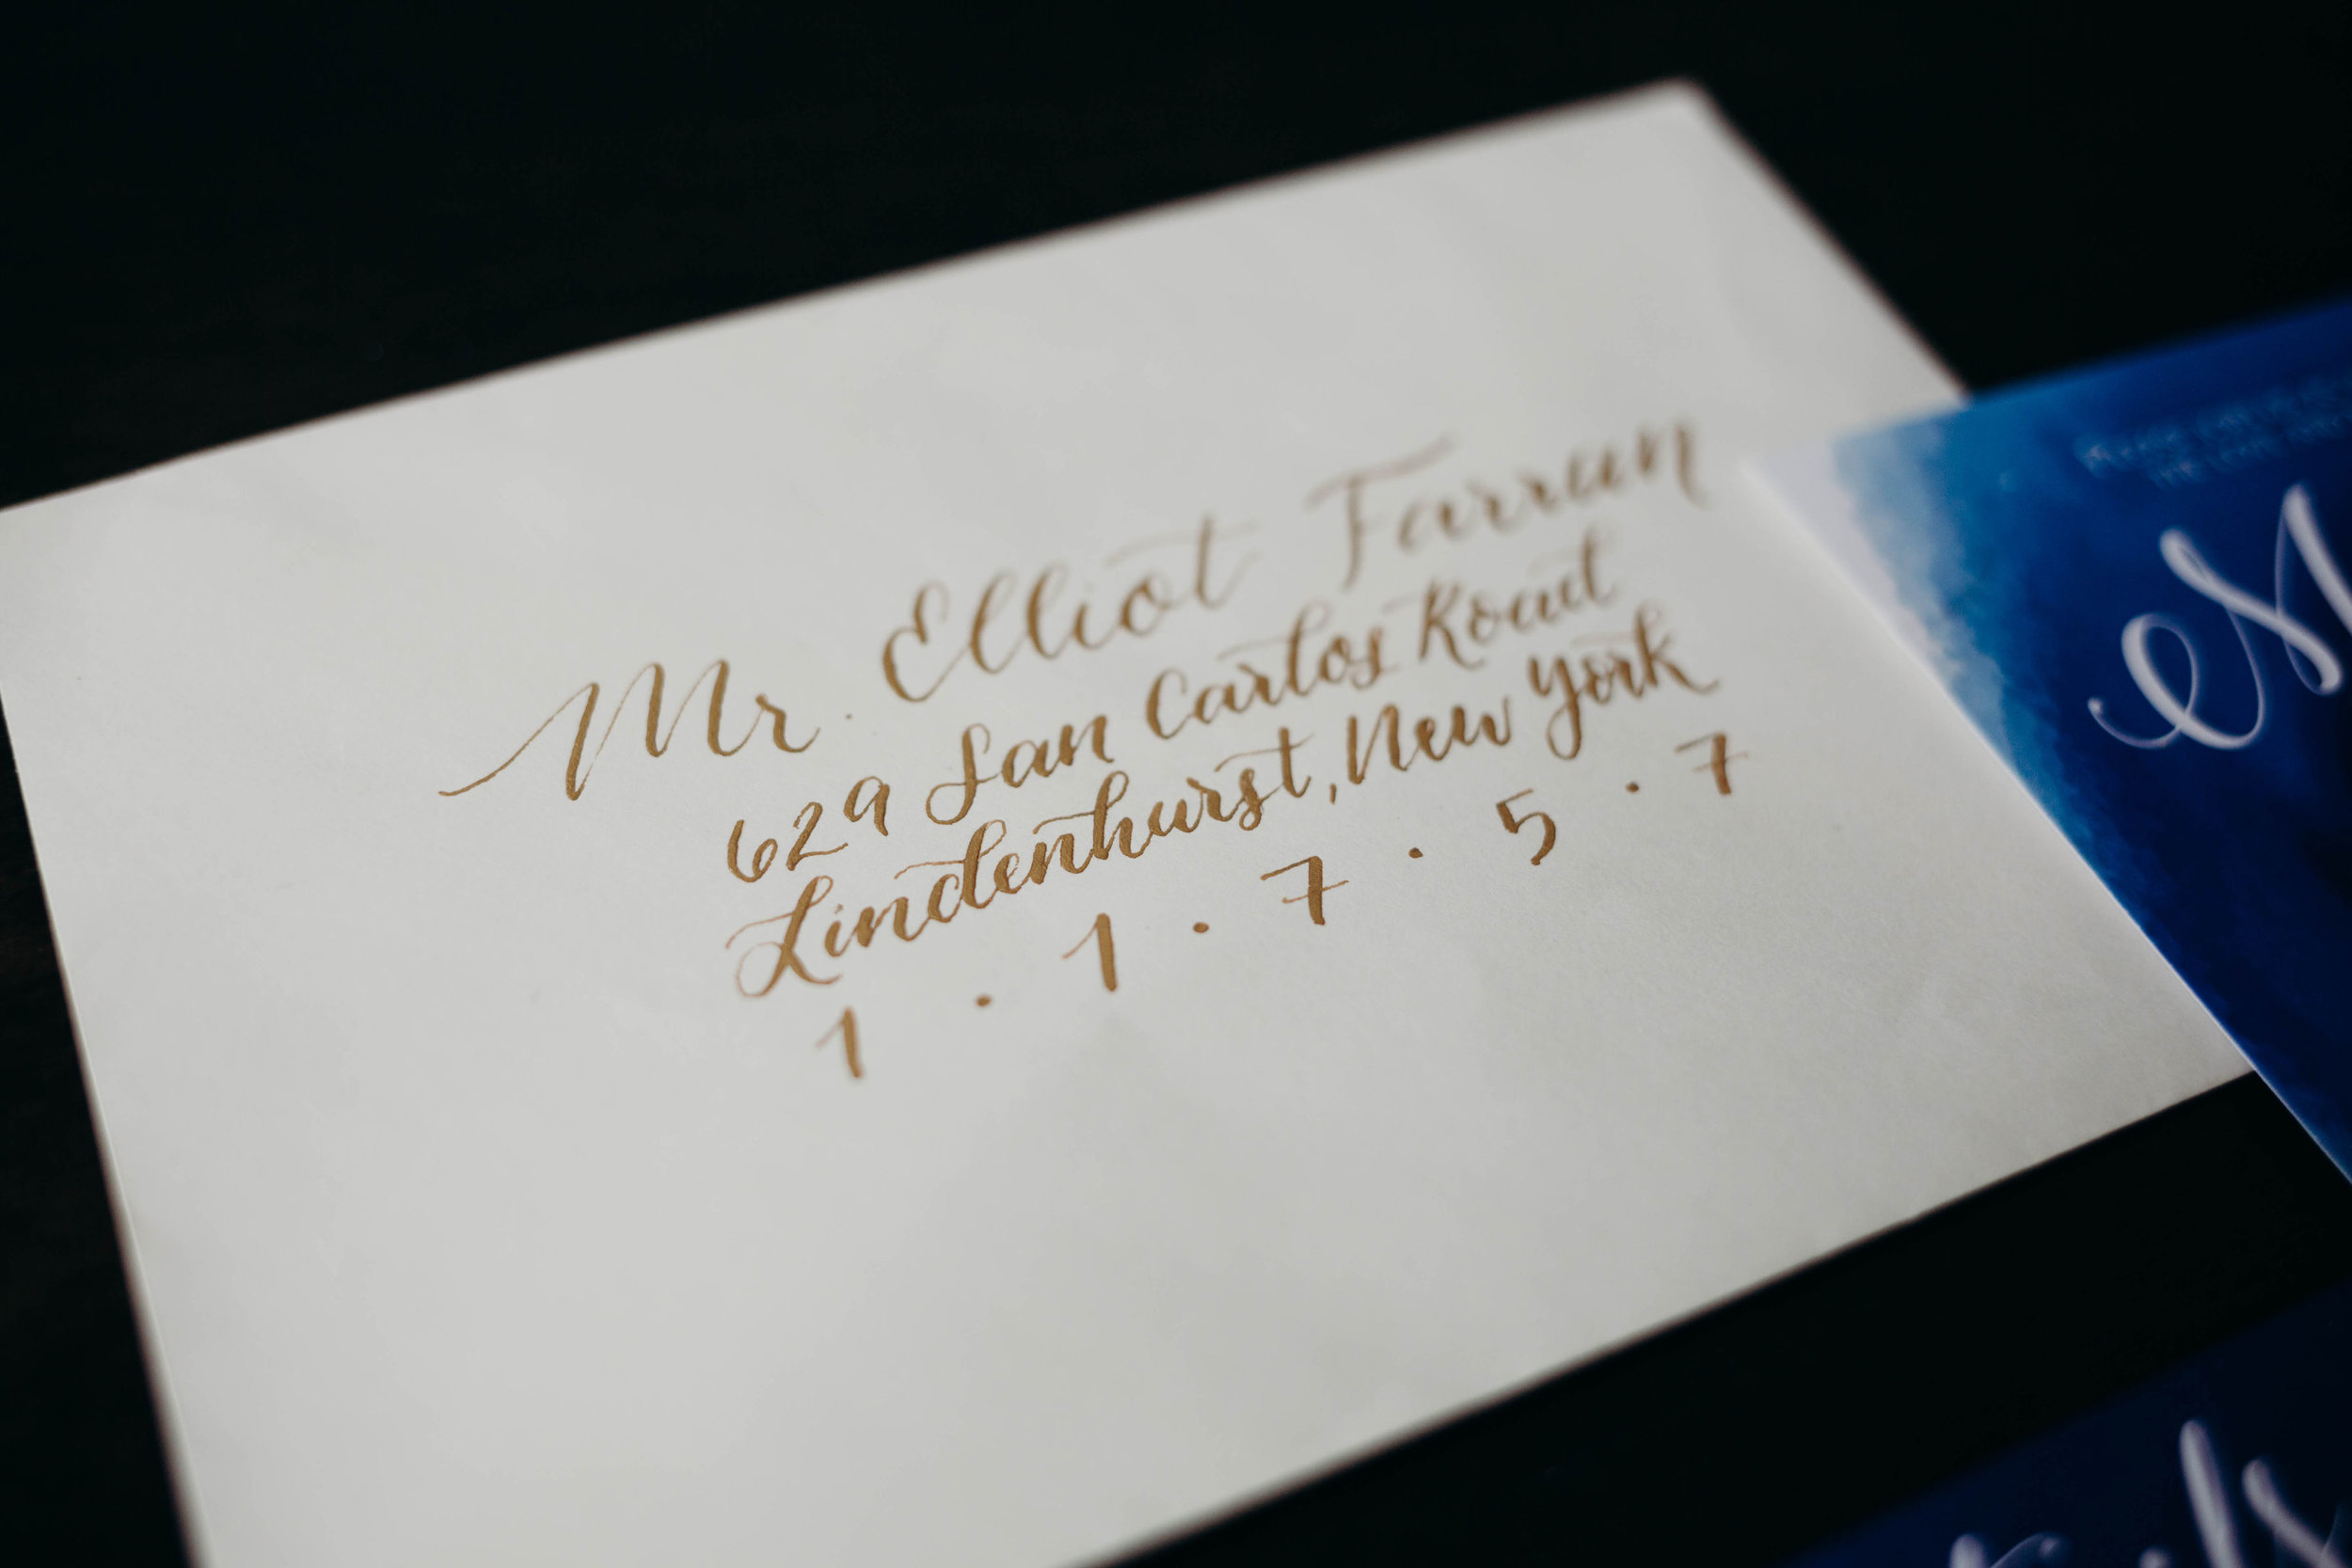 Mr. Elliot Farran
629 San Carlos Road
Lindenhurst, New York
1 . 1 . 7 . 5 . 7